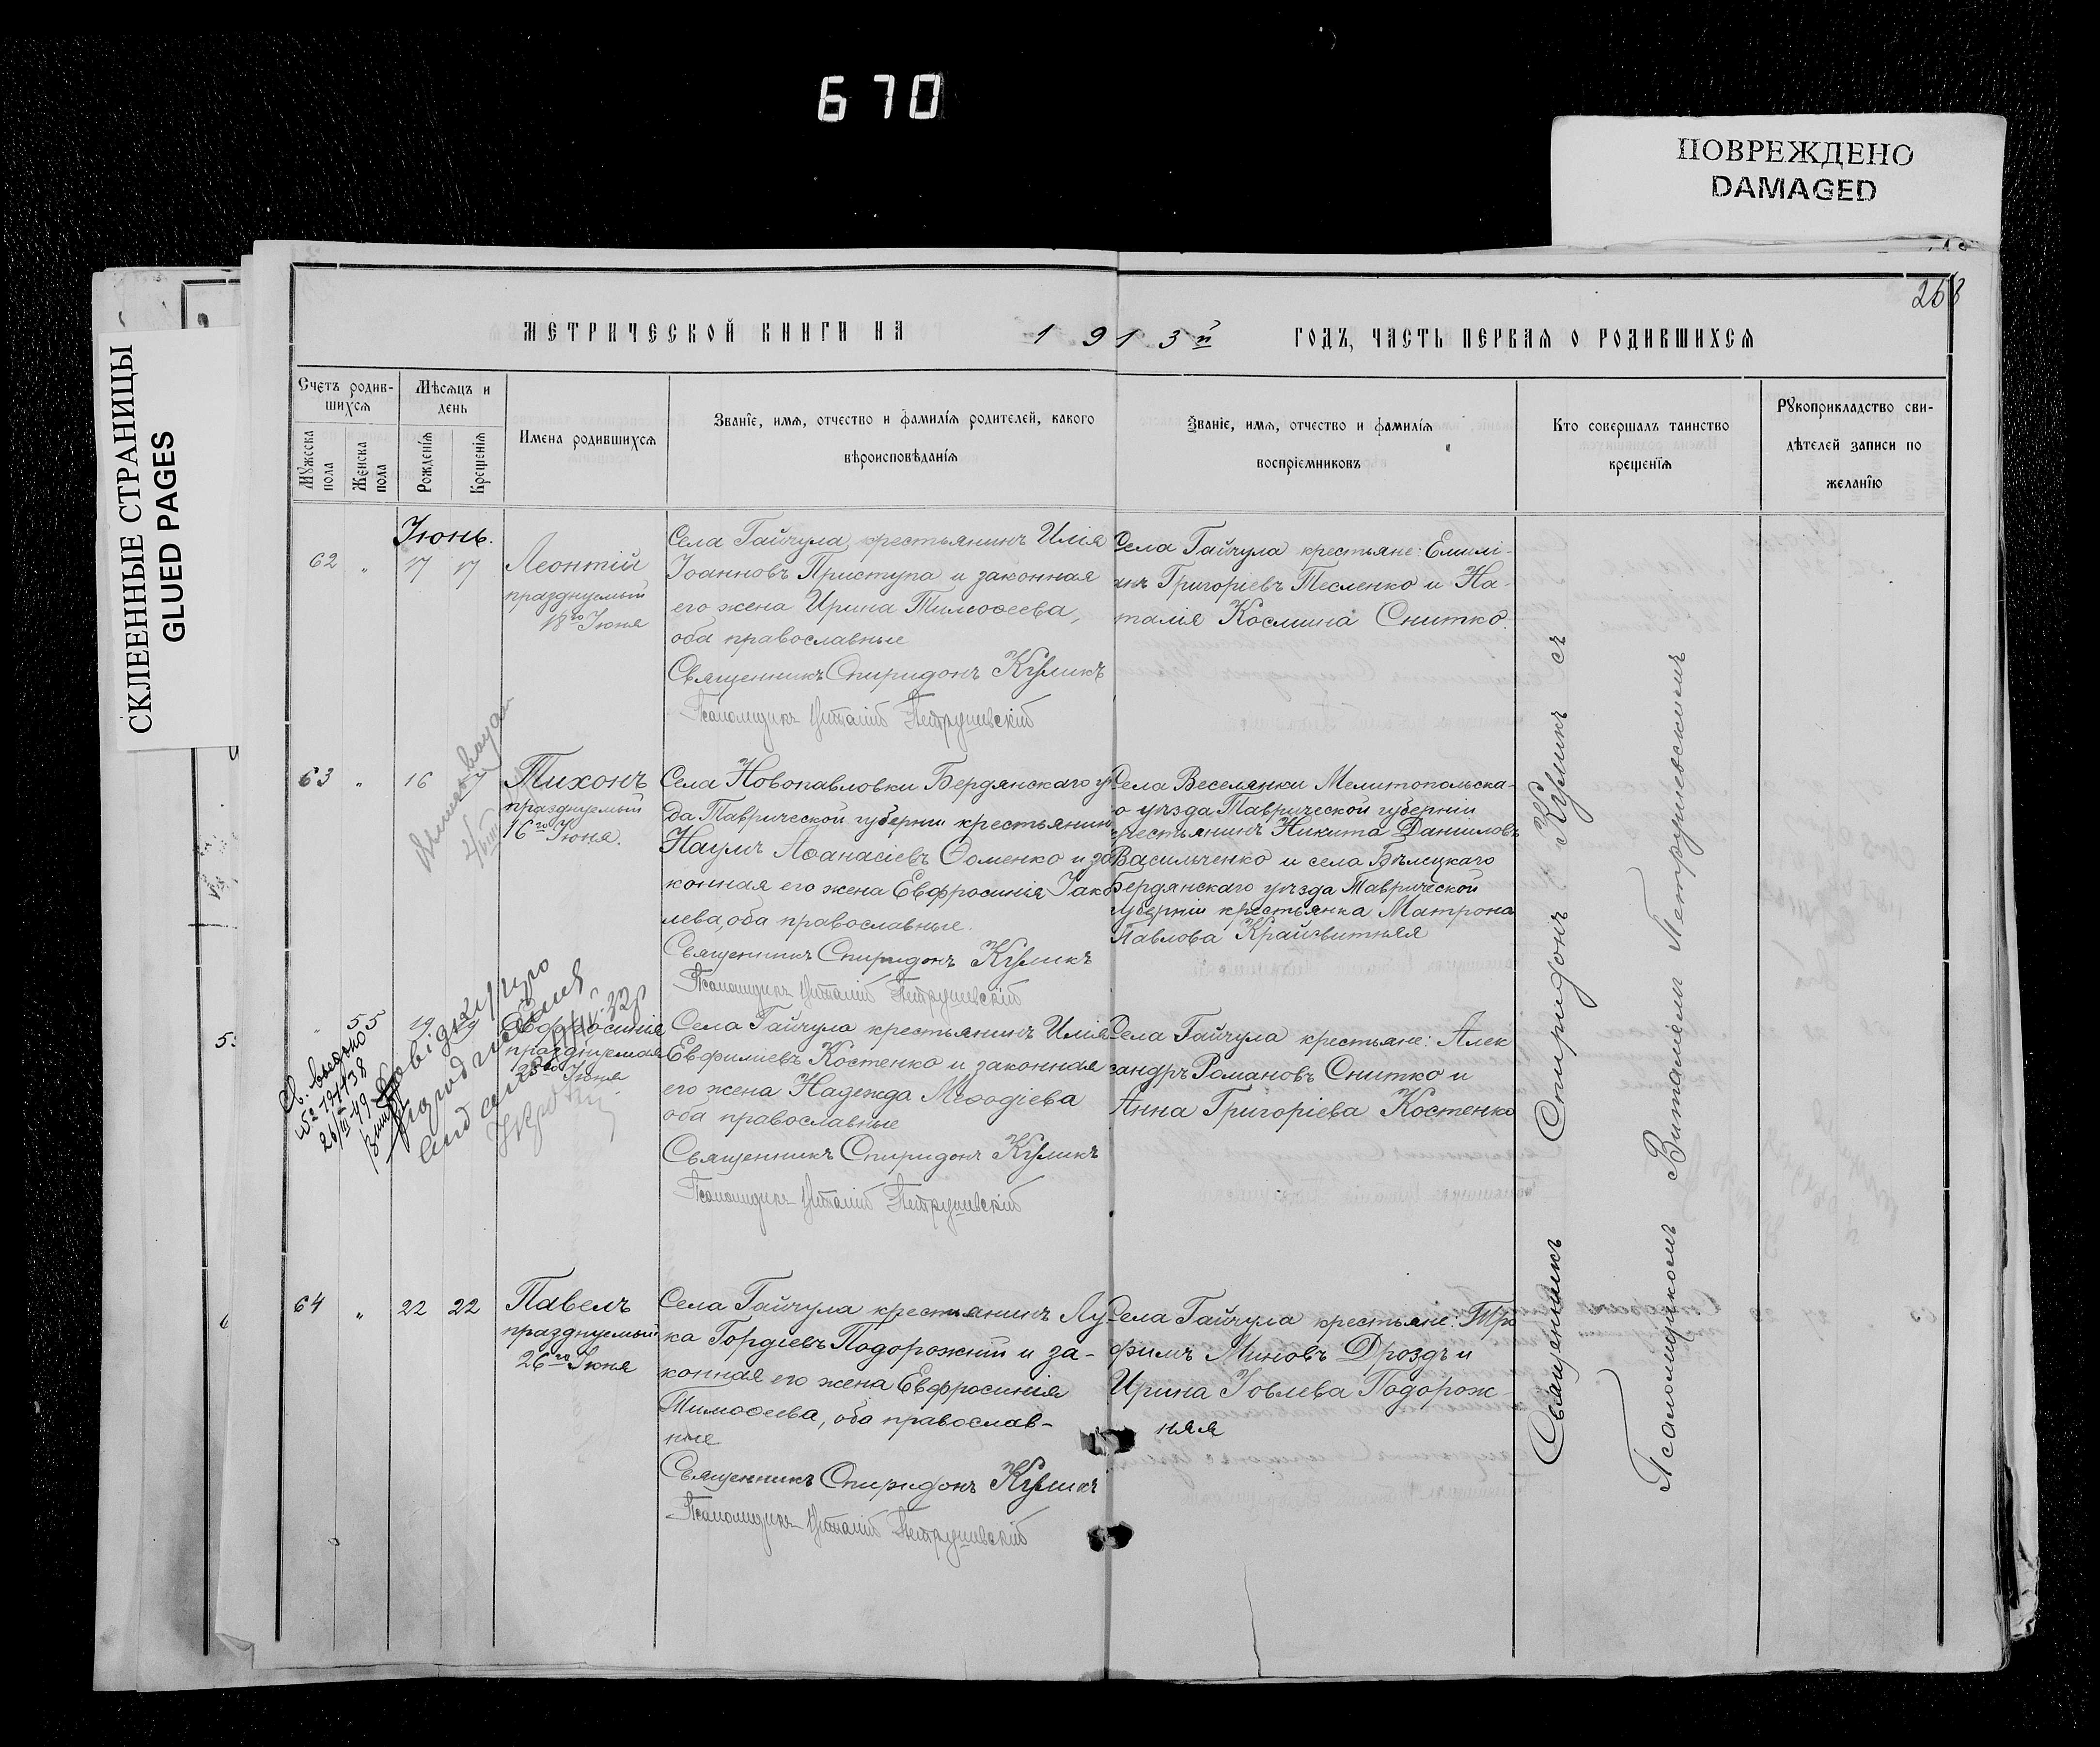 670
ПОВРЕЖДЕНО
DAMAGED
СКЛЕЕННЫЕ СТРАНИЦЫ
GLUED PAGES
268
МЕТРИЧЕСКОЙ КНИГИ НА 1913й ГОДЪ, ЧАСТЬ ПЕРВАЯ О РОДИВШИХСЯ
Счетъ родив-
шихся
Мужеска
пола
Женска
пола
Мѣсяцъ и
день
Рожденія
Крещенія
Имена родившихся
Званіе, имя, отчество и фамилія родителей, какого
вѣроисповѣданія
Званіе, имя, отчество и фамилія
воспріемниковъ
Кто совершалъ таинство
крещенія
Рукоприкладство сви-
дѣтелей записи по
желанію
Іюнь.
62 " 17 17
Леонтій
празднуемый
18го Іюня
Села Гайчула, крестьянинъ Илія
Іоанновъ Приступа и законная
его жена Ирина Тимоѳеева,
оба православные
Священникъ Спиридонъ Куликъ
Псаломщикъ Виталій Петрушевскій
Села Гайчула крестьяне: Емилі-
анъ Григоріевъ Тесленко и На-
талія Космина Снитко.
63 " 16 17
Тихонъ
празднуемый
16го Іюня.
Села Новопавловки Бердянскаго уѣ
да Таврической губерніи крестьянин
Наумъ Аѳанасіевъ Ѳоменко и за
конная его жена Евфросинія Іако
лева, оба православные.
Священникъ Спиридонъ Куликъ
Псаломщикъ Виталій Петрушевскій
Села Веселянки Мелитопольска-
о уѣзда Таврической губерніи
рестьянинъ Никита Даниловъ
Васильченко и села Бѣлецкаго
Бердянскаго уѣзда Таврической
губерніи крестьянка Матрона
Павлова Крайсвитняя
" 55 19 19
Евфросинія
празднуемая
25го Іюня
Села Гайчула крестьянинъ Илія
Евфиміевъ Костенко и законная
его жена Надежда Меѳодіева
оба православные
Священникъ Спиридонъ Куликъ
Псаломщикъ Виталій Петрушевскій
Села Гайчула крестьяне: Алек
сандръ Романовъ Снитко и
Анна Григоріева Костенко
64 " 22 22
Павелъ
празднуемый
26го Іюня
Села Гайчула крестьянинъ Лу
ка Гордіевъ Подорожній и за-
конная его жена Евфросинія
Тимоѳеева, оба православ-
ные
Священникъ Спиридонъ Куликъ
Псаломщикъ Виталій Петрушевскій
Села Гайчула крестьяне: Тро
фимъ Миновъ Дроздъ и
Ирина Іовлева Подорож-
няя
Священникъ Спиридонъ Куликъ съ
Псаломщикомъ Виталіемъ Петрушевскимъ